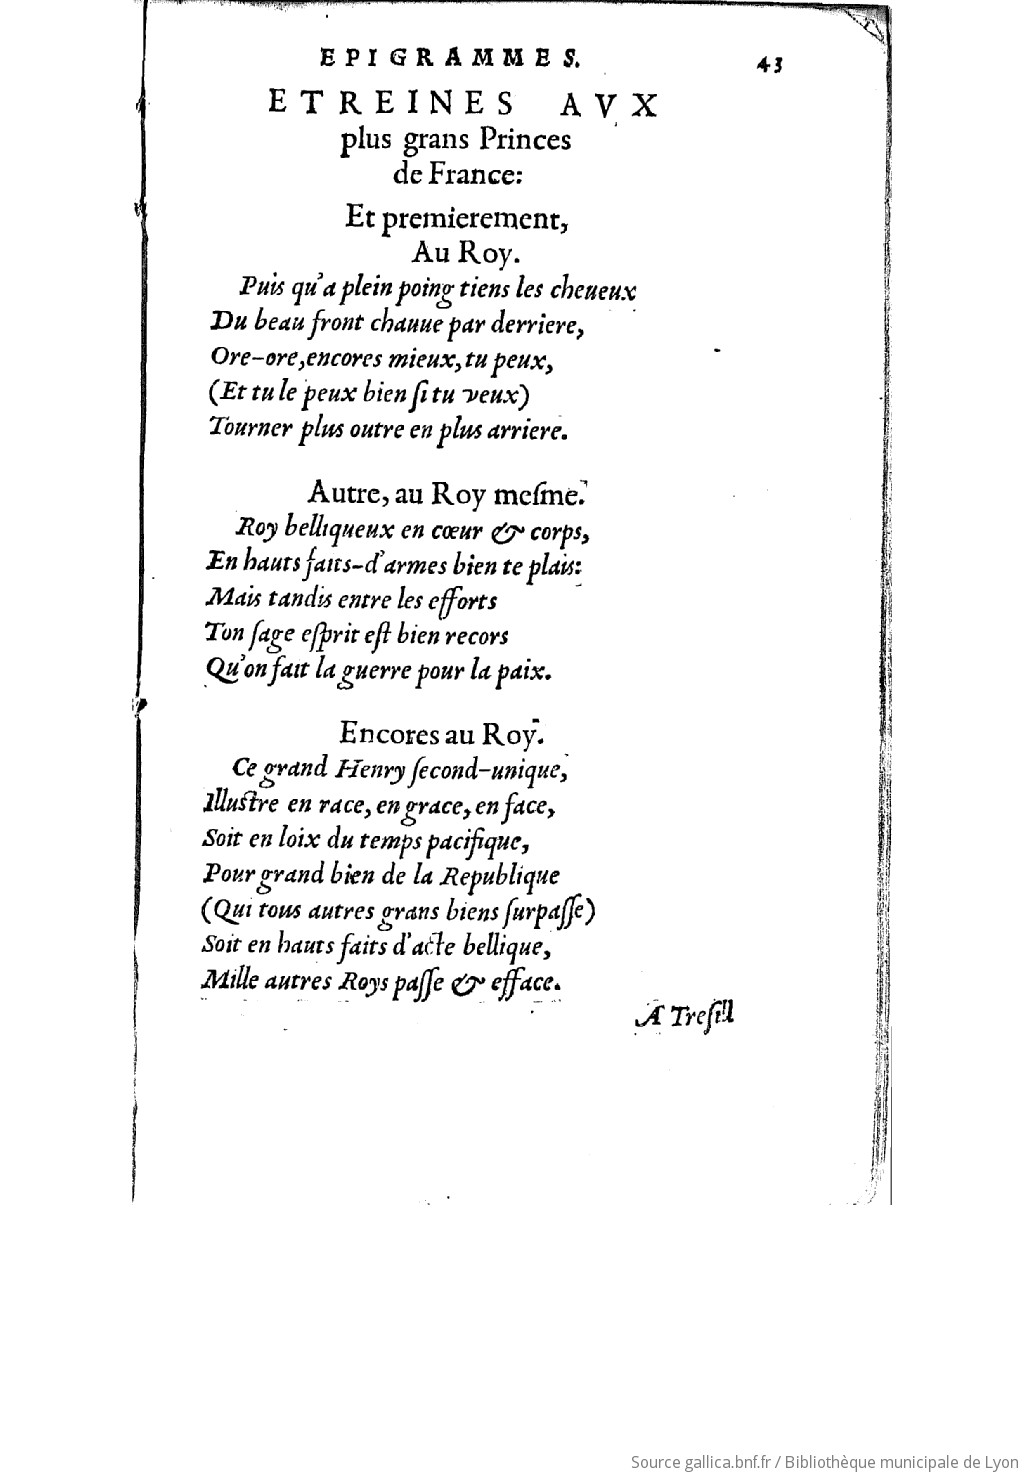 EPIGRAMMES. 43
ETREINES AVX
plus grans Princes
de France:
Et premierement,
Au Roy.
Puis qu'a plein poing tiens les cheueux
Du beau front chauue par derriere,
Ore-ore, encores mieux, tu peux,
(Et tu le peux bien ſi tu veux)
Tourner plus outre en plus arriere.
Autre, au Roy meſme.
Roy belliqueux en cœur & corps,
En hauts faits-d'armes bien te plais:
Mais tandis entre les efforts
Ton ſage eſprit eſt bien recors
Qu'on fait la guerre pour la paix.
Encores au Roy.
Ce grand Henry ſecond-unique,
Illuſtre en race, en grace, en face,
Soit en loix du temps pacifique,
Pour grand bien de la Republique
(Qui tous autres grans biens ſurpaſſe)
Soit en hauts faits d'acte bellique,
Mille autres Roys paſſe & efface.
A Treſill
Source gallica.bnf.fr / Bibliothèque municipale de Lyon